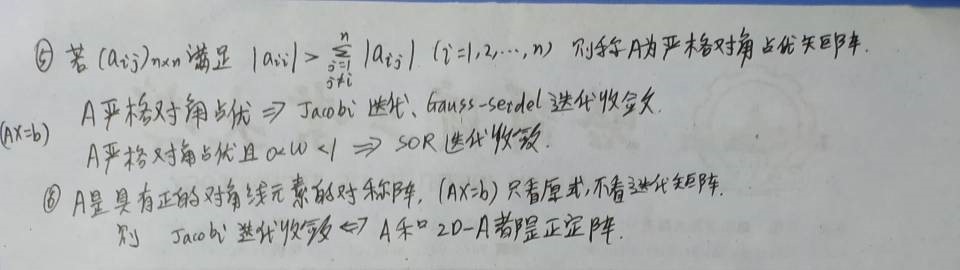 ⑤ 若(aij)n×n满足 |aii| > n∑j=1 j≠i |aij| (i=1,2,…,n) 则称A为严格对角占优矩阵.
A严格对角占优 ⇒ Jacobi 迭代、Gauss-seidel 迭代收敛.
(AX=b)
A严格对角占优且 0<W<1 ⇒ SOR 迭代收敛.
⑥ A是具有正的对角线元素的对称阵, (AX=b) 只看原式,不看迭代矩阵.
则 Jacobi 迭代收敛 ⇔ A和 2D-A都是正定阵.